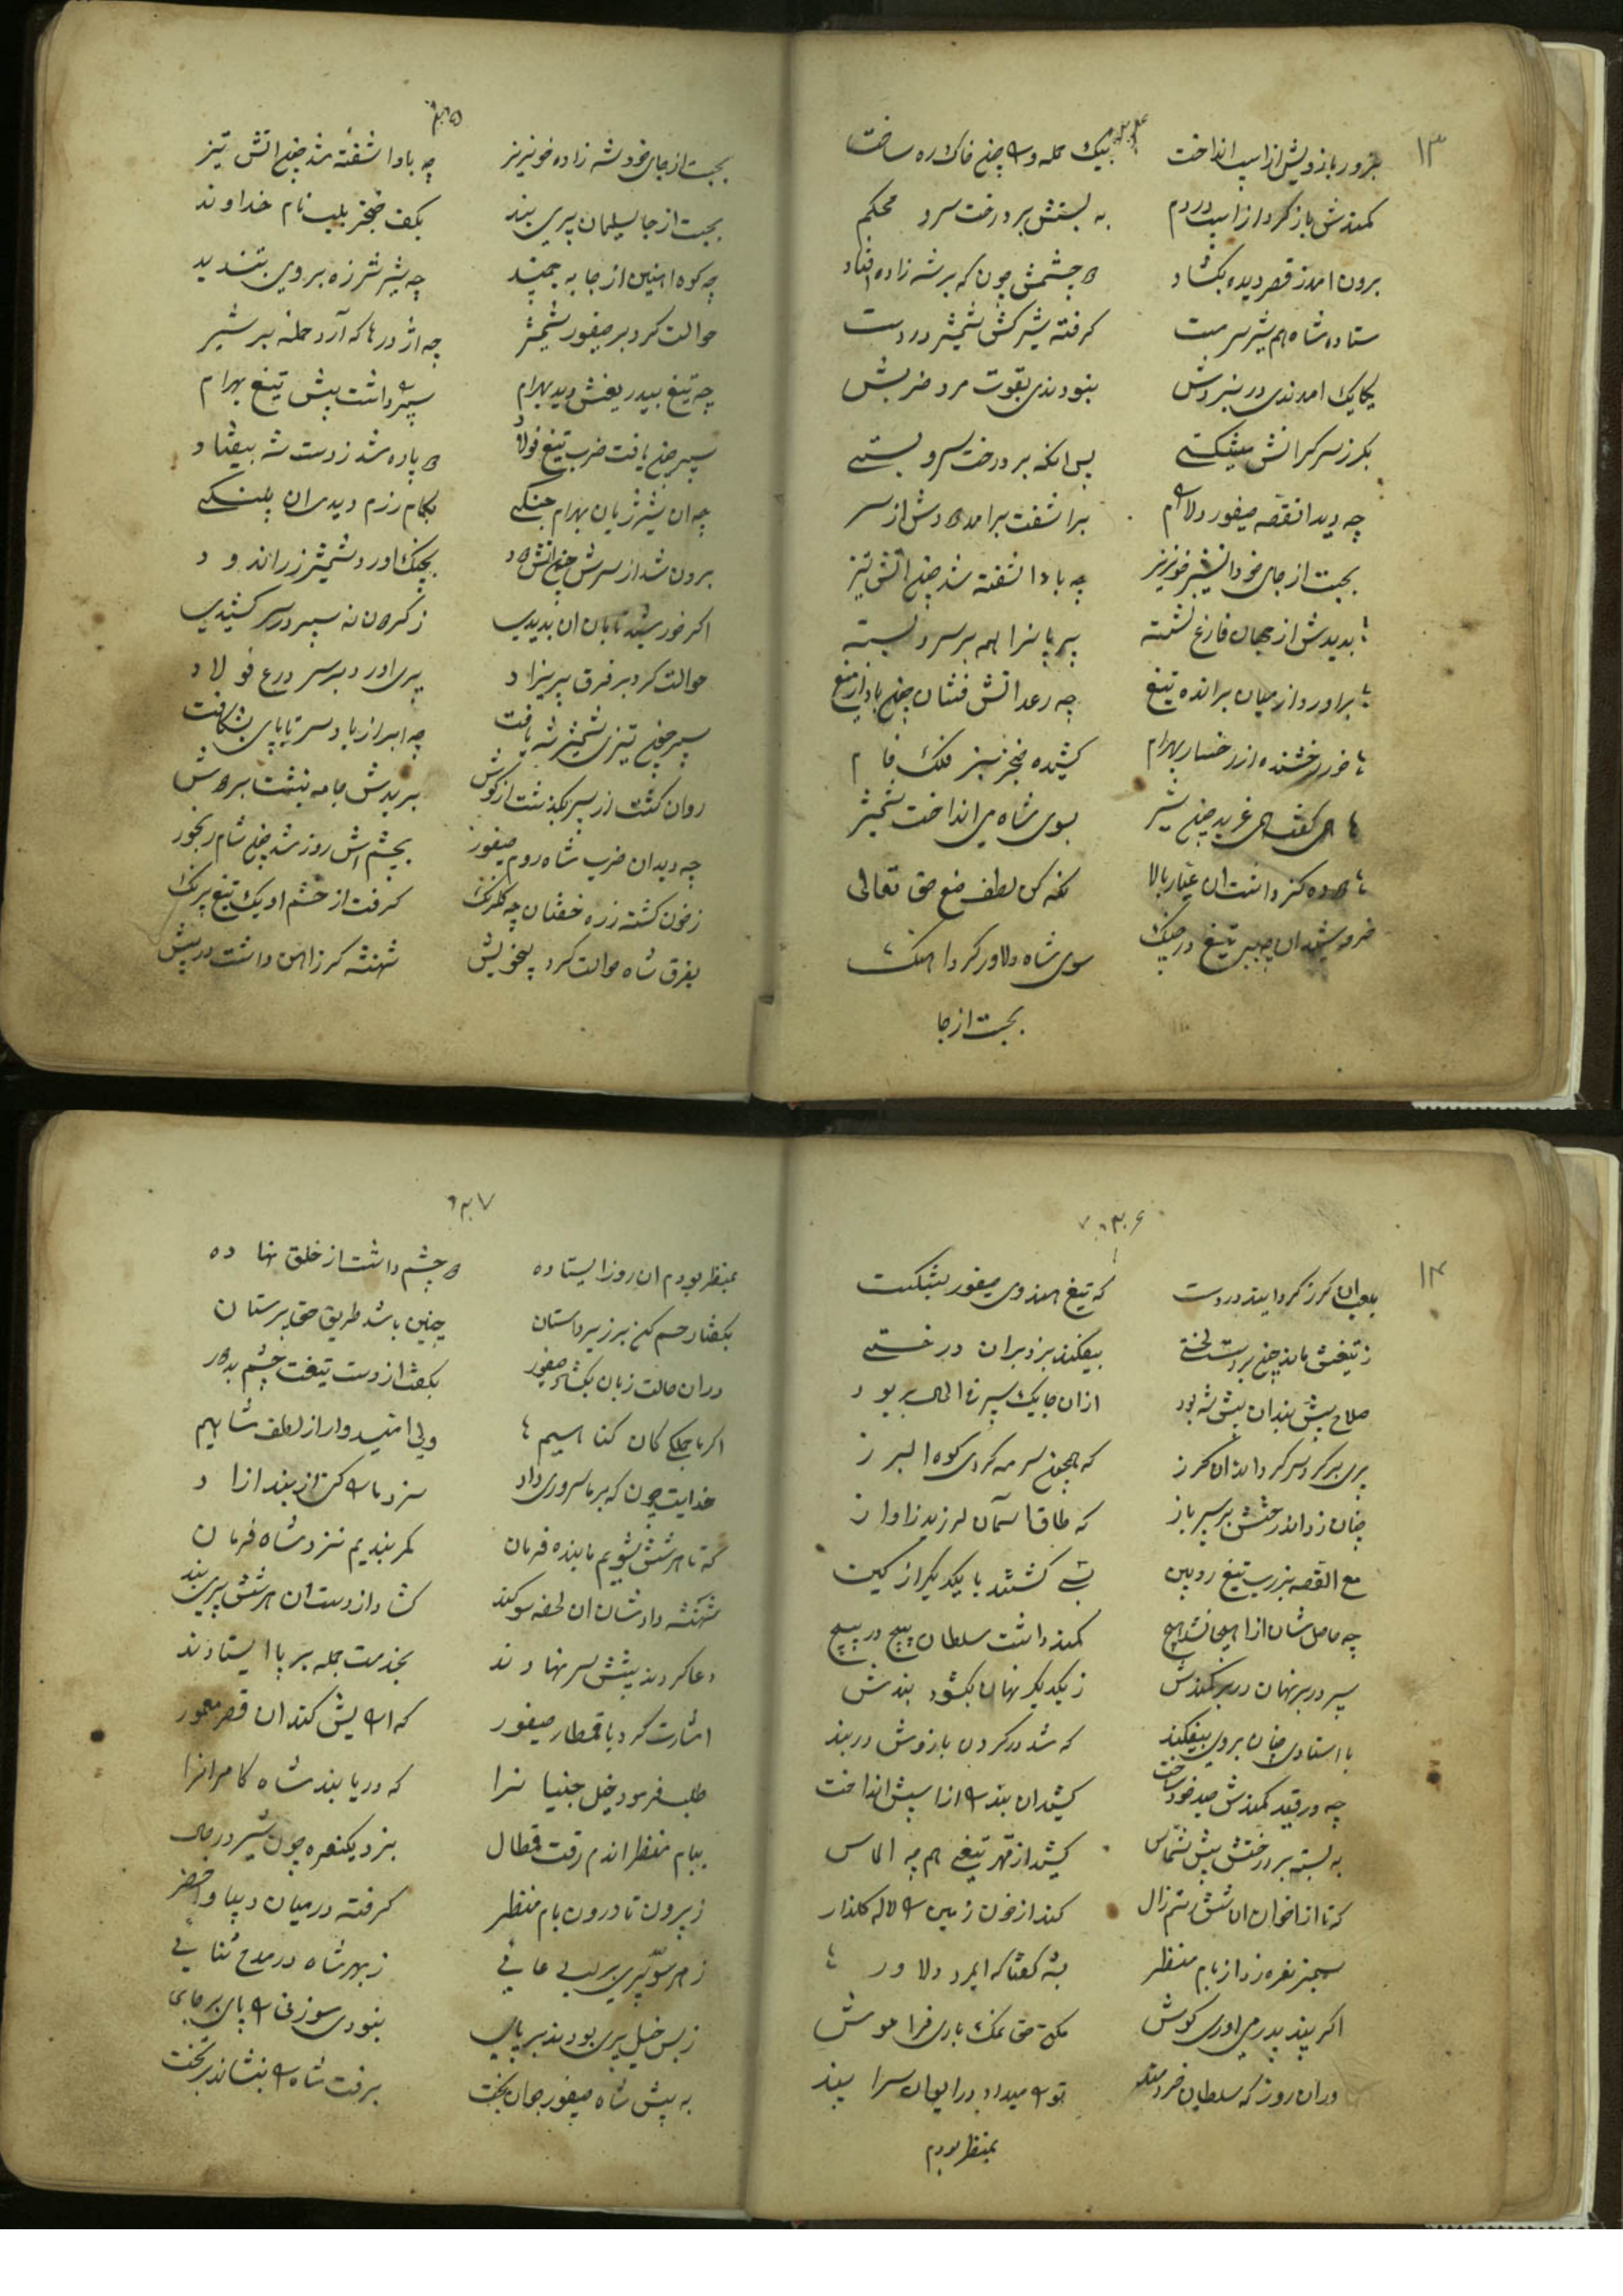 ۱۳
بزور بازویش از اسپ انداخت بیک حمله و را چون خاک ره ساخت
کمندش باز کرد از اسپ در دم به بستش بر درخت سرو محکم
برون امد ز قصر دیده بکشاد دو چشمش چون که بر شه زاده افتاد
ستاده شاه هم شیر سرمست کرفته شیرکش شمشیر در دست
یکایک امدندی در نبردش نبودندی بقوت مرد ضربش
بکرز سر کرانش میشکستی پس انکه بر درخت سرو بستی
چه دید انقصه صیفور دلارام براشفت برامد دودش از سر
بجست از جای خود ان شیر خونریز چه باد اشفته شد چون اتش تیز
بدیدش از جهان فارغ نشسته پریانرا همه بر سرو بسته
براورد از میان برانده تیغ چه رعد اتش فشان چون باد از میغ
خور رخشنده از رخسار بهرام کشیده خنجر سبز فلک فام
های کفت های غرید چون شیر بسوی شاه می انداخت شمشیر
دوده کز داشت ان عیار بالا نکه کن لطف صنع حق تعالی
خروشید ان چه ببر تیغ در چنک سوی شاه دلاور کرد اهنک
بجست از جا
بجست از جای خود شه زاده خونریز چه باد اشفته شد چون اتش تیز
بجست از جا سلیمان پری بند بکف خنجر بلب نام خداوند
چه کوه اهنین از جا به جنبید چه شیر شرزه بر وی بتندید
حوالت کرد بر صیفور شمشیر چه اژدرها که آرد حمله بر شیر
چه تیغ بیدریغش دید بهرام سپر داشت پیش تیغ بهرام
سپر چون یافت ضرب تیغ فولاد دو پاره شد ز دست شه بیفتاد
چه ان شیر ژیان بهرام جنکی بکام رزم دیدی ان پلنکی
برون شد از سرش چون اتش دود بچنک اورد شمشیر زراندود
اکر خورشید تابان ان بدیدی ز کردون نه سپر در سر کشیدی
حوالت کرد بر فرق پریزاد پری اورد بر سر درع فولاد
سپر چون تیزی شمشیر شه یافت چه ابر از باد سر تا پای بشکافت
روان کشت از سپر بکذشت از کوش ببریدش جامه بنشت بر دوش
چه دید ان ضرب شاه روم صیفور بچشمش روز شد چون شام رنجور
ز خون کشته زره خفتان چه کلرنک کرفت از خشم او یک تیغ پرنک
بفرق شاه حوالت کرد بیخویش شهنشه کرز اهن داشت در پیش
۱۴
بلعبان کرز کرد ایند در دست که تیغ هندوی صیفور بشکست
ز تیغش ماند چون بر دست لختی بیفکند بزد بران درختی
سلاح پیش بندان پیش شه بود ازان جا یک سپر فی الحال بربود
پری بر کرد سر کرداند ان کرز که همچون سرمه کردی کوه البرز
چنان زد اندر خشتش بر سپر باز که طاق اسمان لرزید ز اواز
مع القصه بزرب تیغ زوبین بسی کشتند با یکدیکر از کین
چه حاصل شان از اهیجا نشد هیچ کمند داشت سلطان پیچ در پیچ
سپر در بر نهان در بر کمندش ز یکدیکر نهان بکشود بندش
با استادی چنان بر وی بیفکند که شد در کردن بازوش در بند
چه در قید کمندش صید خود ساخت کشید ان بند را از اسپش انداخت
به بسته بر درختش پیش شماس کشید از قهر تیغی هم چه الماس
که تا از خون ان شش رستم زال کند از خون زمین را لاله کلذار
سمنبر نعره زد از بام منظر بشه کفتا که ایمرد دلاور
اکر پند پدر می اوری کوش مکن حق نمک باری فراموش
دران روز که سلطان خردمند تو را میداد در ایوان سرا پند
بمنظر بودم
بمنظر بودم ان روز ایستاده دو چشم داشت از خلق نهاده
بکفتا رحم کن بر زیردستان چنین باشد طریق حق پرستان
دران حالت زبان بکشاد صیفور بکفت از دست تیغت چشم بد دور
اکر ما جملکی کان کناهیم ولی امیدوار از لطف شاهیم
خدایت چون که بر ما سروری داد سزد ما را کنی از بند ازاد
که تا هر شش شویم ما بنده فرمان کمر بندیم نزد شاه فرمان
شهنشه داد شان ان لحظه سوکند کشاد از دست ان هر شش پری بند
دعا کردند پیشش سر نهادند بخدمت جمله بر پا ایستادند
اشارت کرد با قمطار صیفور که ارایش کند ان قصر معمور
طلب فرمود خیل جنیانرا که دریابند شاه کامرانرا
ببام منظر اندم رفت قمطال بزد یک نعره چون شیر در حال
ز بیرون تا درون بام منظر کرفته در میان دیبا و اخضر
ز هر سو پری بر لب دعائی ز بهر شاه در مدح ثنائی
ز بس خیل پری بودند بر پای نبودی سوزنی را پای بر جای
به پیش شاه صیفور جوان بخت برفت شاه را بنشاند بر تخت